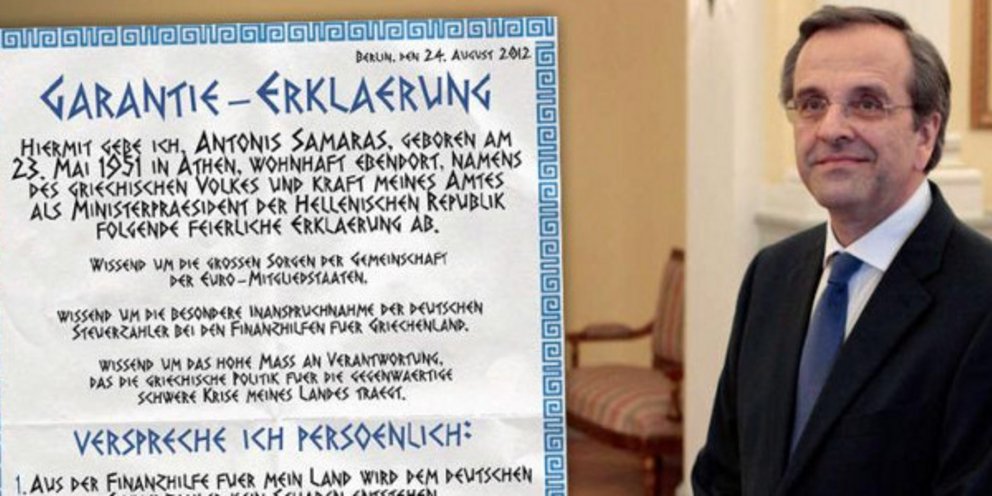 BERLIN, DEN 24. AUGUST 2012
GARANTIE – ERKLAERUNG
HIERMIT GEBE ICH, ANTONIS SAMARAS, GEBOREN AM
23. MAI 1951 IN ATHEN, WOHNHAFT EBENDORT, NAMENS
DES GRIECHISCHEN VOLKES UND KRAFT MEINES AMTES
ALS MINISTERPRAESIDENT DER HELLENISCHEN REPUBLIK
FOLGENDE FEIERLICHE ERKLAERUNG AB.
WISSEND UM DIE GROSSEN SORGEN DER GEMEINSCHAFT
DER EURO–MITGLIEDSTAATEN,
WISSEND UM DIE BESONDERE INANSPRUCHNAHME DER DEUTSCHEN
STEUERZAHLER BEI DEN FINANZHILFEN FUER GRIECHENLAND,
WISSEND UM DAS HOHE MASS AN VERANTWORTUNG,
DAS DIE GRIECHISCHE POLITIK FUER DIE GEGENWAERTIGE
SCHWERE KRISE MEINES LANDES TRAEGT,
VERSPRECHE ICH PERSOENLICH:
1. AUS DER FINANZHILFE FUER MEIN LAND WIRD DEM DEUTSCHEN
STEUERZAHLER KEIN SCHADEN ENTSTEHEN